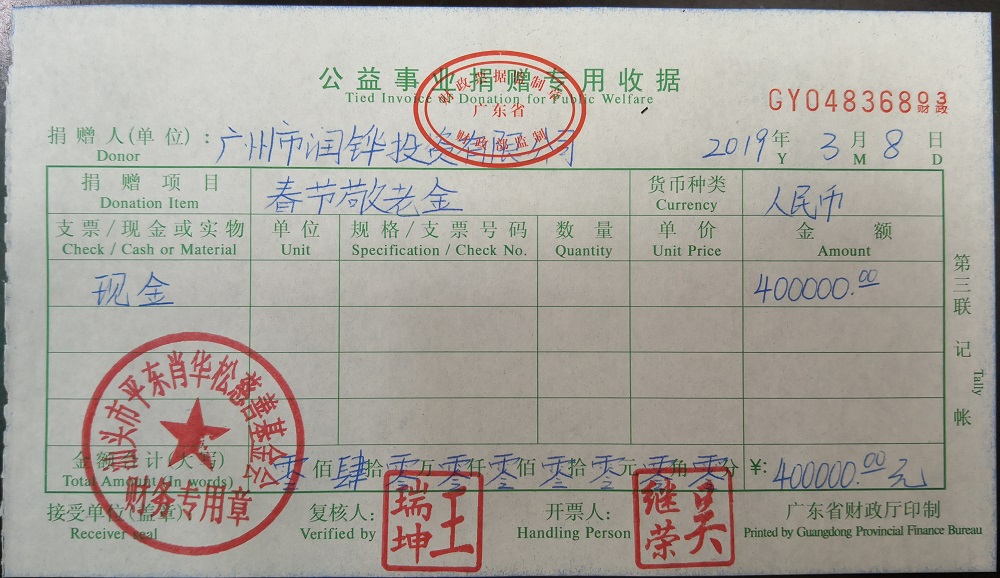 公益事业捐赠专用收据
Tied Invoice of Donation for Public Welfare
财政票据监制章
广东省
财政部监制
GY04836803
财政
捐赠人(单位): 广州市润铧投资有限公司 2019年 3月 8日
Donor Y M D
捐赠项目 春节敬老金 货币种类 人民币
Donation Item Currency
支票/现金或实物 单位 规格/支票号码 数量 单价 金额
Check / Cash or Material Unit Specification / Check No. Quantity Unit Price Amount
现金 400000.00
第三联 记帐
Tally
汕头市平东肖华松慈善基金会
财务专用章
金额合计(大写) 零佰肆拾零万零仟零佰零拾零元零角零分 ¥: 400000.00元
Total Amount (In words)
接受单位(盖章) 复核人: 王瑞坤 开票人: 吴继荣 广东省财政厅印制
Receiver seal Verified by Handling Person Printed by Guangdong Provincial Finance Bureau